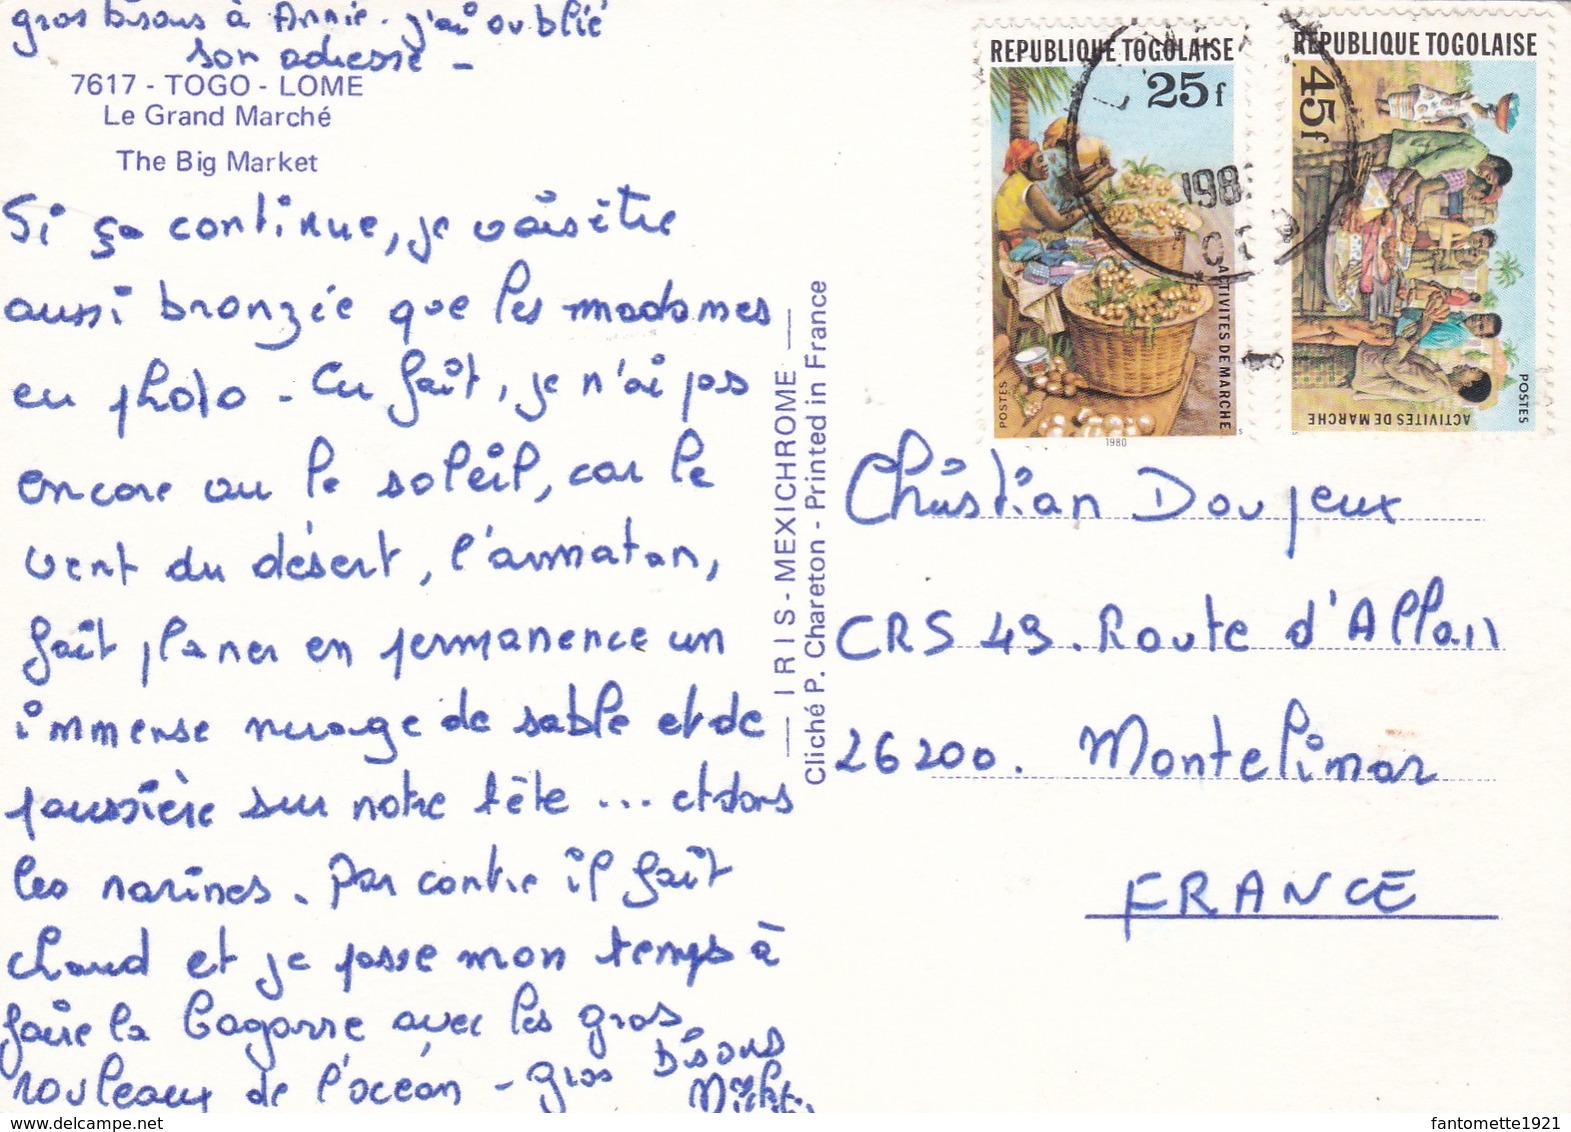 gros bisous à Annie. j'ai oublié
son adresse -
7617 - TOGO - LOME
Le Grand Marché
The Big Market
Si ça continue, je vais être
aussi bronzée que les madames
en photo - En fait, je n'ai pas
encore vu le soleil, car le
vent du désert, l'armatan,
fait planer en permanence un
immense nuage de sable et de
poussière sur notre tête ... et dans
les narines. Par contre il fait
chaud et je passe mon temps à
faire la bagarre avec les gros
rouleaux de l'océan - gros bisous
IRIS - MEXICHROME
Cliché P. Chareton - Printed in France
REPUBLIQUE TOGOLAISE
25f
ACTIVITES DE MARCHE
POSTES
1980
REPUBLIQUE TOGOLAISE
45f
ACTIVITES DE MARCHE
POSTES
Christian Doujeux
CRS 49. Route d'Allan
26200. Montelimar
FRANCE
fantomette1921